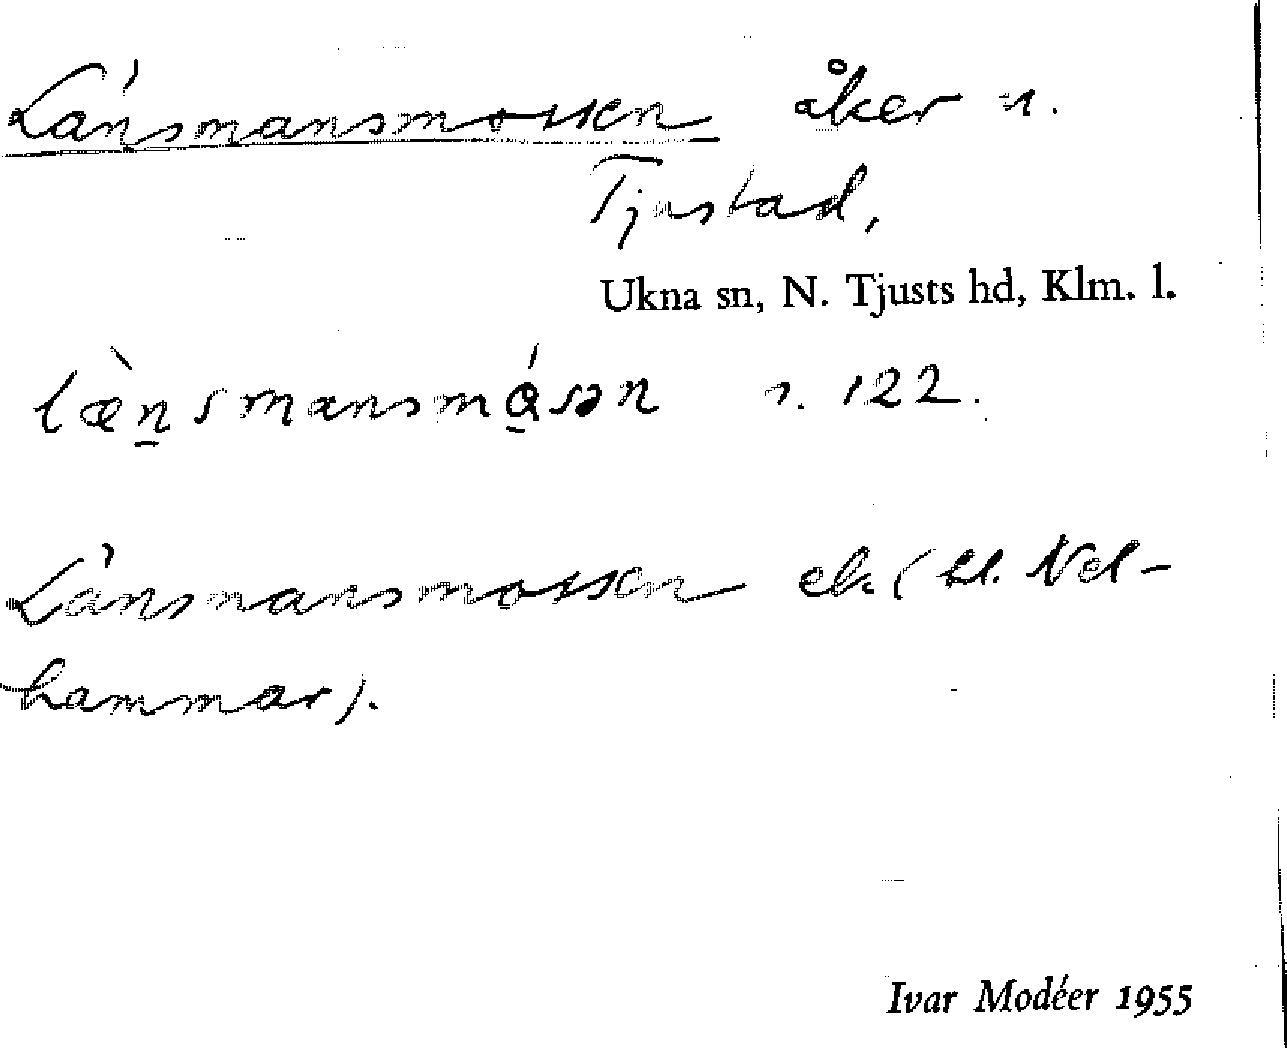 Länsmansmossen åker n.
Tjustad,
Ukna sn, N. Tjusts hd, Klm. l.
læ̀n̲smansmá̲sən s. 122.
Länsmansmossen ek. (bl. Nel-
hammar).
Ivar Modéer 1955